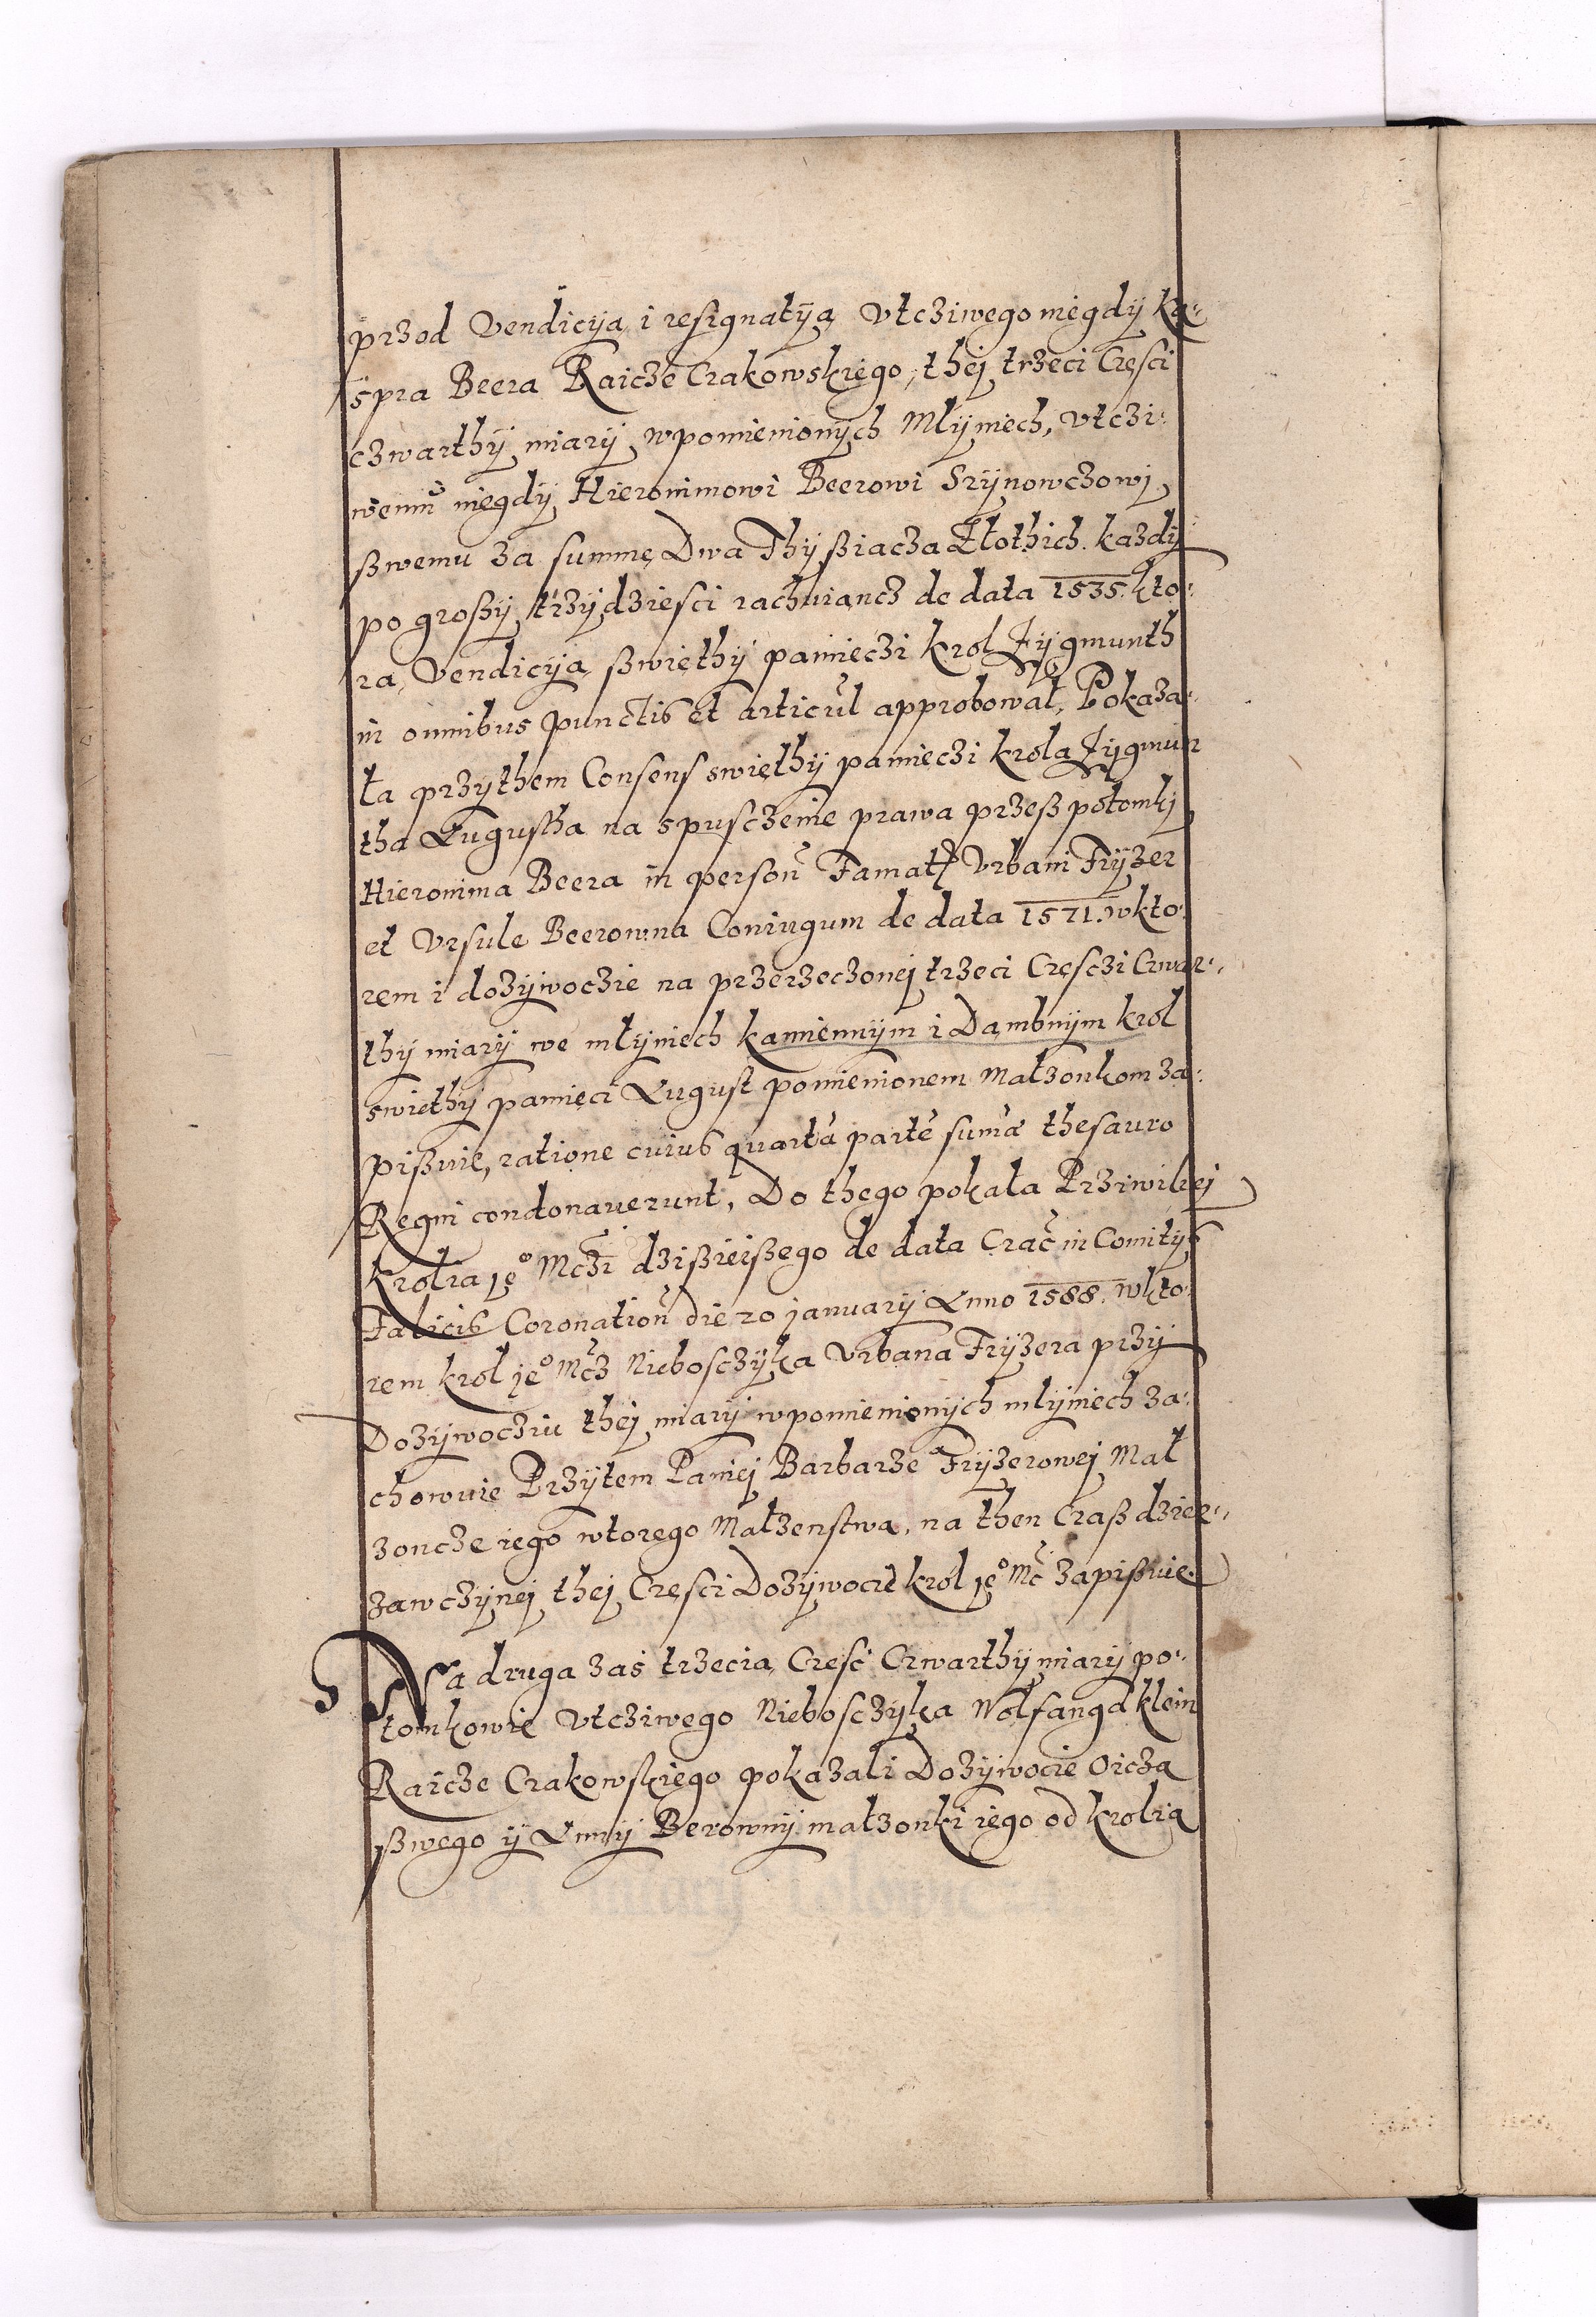 przod Vendicÿa i resignatÿą Vtcziwego niegdÿ Ka-
spra Beera Raicze Crakowskiego, thej trzeci Cręsci
czwarthÿ miarÿ wpomienionÿch Mlÿniech, Vtczi-
wemu niegdÿ Hieronimowi Beerowi Sÿnowczowi
ßwemu za summę Dwa Thÿßiacza Złothich każdÿ
po großÿ trzÿdziesci rachuiąncz de data 1535. kto-
ra Vendicÿą ßwięthÿ pamięczi krol Zÿgmunth
in omnibus punctis et articul approbował, Pokaza-
ła przÿthem Consens swięthÿ pamięczi krola Zÿgmun
tha Augusta na spusczenie prawa przeß potomki
Hieronima Beera in person Famat Vrbani Frÿzer
et Vrsule Beerowna Coniugum de data 1571. wkto-
rem i dożÿwoczie na przerzeczonej trzeci Cręsczi Czwar-
thÿ miarÿ we młÿniech kamiennÿm i Dambnÿm krol
swięthÿ pamięci August pomienionem Małzonkom za-
pißuie, ratione cuius quartā partē sumā thesauro
Regni condonauerunt, Do thego pokała Prziwilej
Krolia Jeᵒ Mczi dzißieißego de data Crac in Comitÿs
Falicis Coronation die 20 januarÿ Anno 1588. wkto-
rem krol jeᵒ Mcz Nieboszczÿka Vrbana Frÿzera przÿ
Dożÿwocziu thej miarÿ wpomienionÿch mlÿniech za-
chowuie Przÿtem Paniej Barbarze Frÿzerowej Mał
zoncze iego wtorego Małzenstwa, na then Czaß dzier-
zawczÿnej thej Cręsci Dożÿwocie krol jeᵒ Mc zapißuie
Na druga zaś trzecią Cręsć Czwarthÿ miarÿ po-
tomkowie Vtcziwego Nieboszczÿka Wolfanga klein
Raicze Crakowskiego pokazali Dożÿwocie Oicza
ßwego ÿ Annÿ Berownÿ małzonki iego od krolią